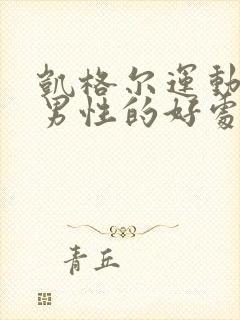 凯格尔運動
男性的好處
青丘